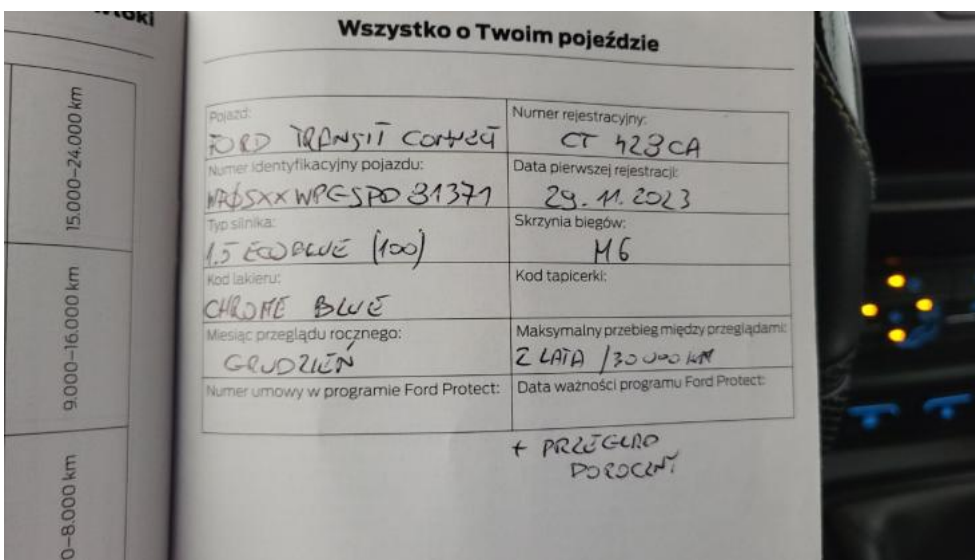 Wszystko o Twoim pojeździe
15.000–24.000 km
9.000–16.000 km
0–8.000 km
Pojazd:
FORD TRANSIT CONNECT
Numer rejestracyjny:
CT 423CA
Numer identyfikacyjny pojazdu:
Data pierwszej rejestracji:
29.11.2023
Typ silnika:
1.5 ECOBLUE (100)
Skrzynia biegów:
M6
Kod lakieru:
CHROME BLUE
Kod tapicerki:
Miesiąc przeglądu rocznego:
GRUDZIEŃ
Maksymalny przebieg między przeglądami:
2 LATA / 30 000 KM
Numer umowy w programie Ford Protect:
Data ważności programu Ford Protect:
+ PRZEGLĄD
DOROCZNY